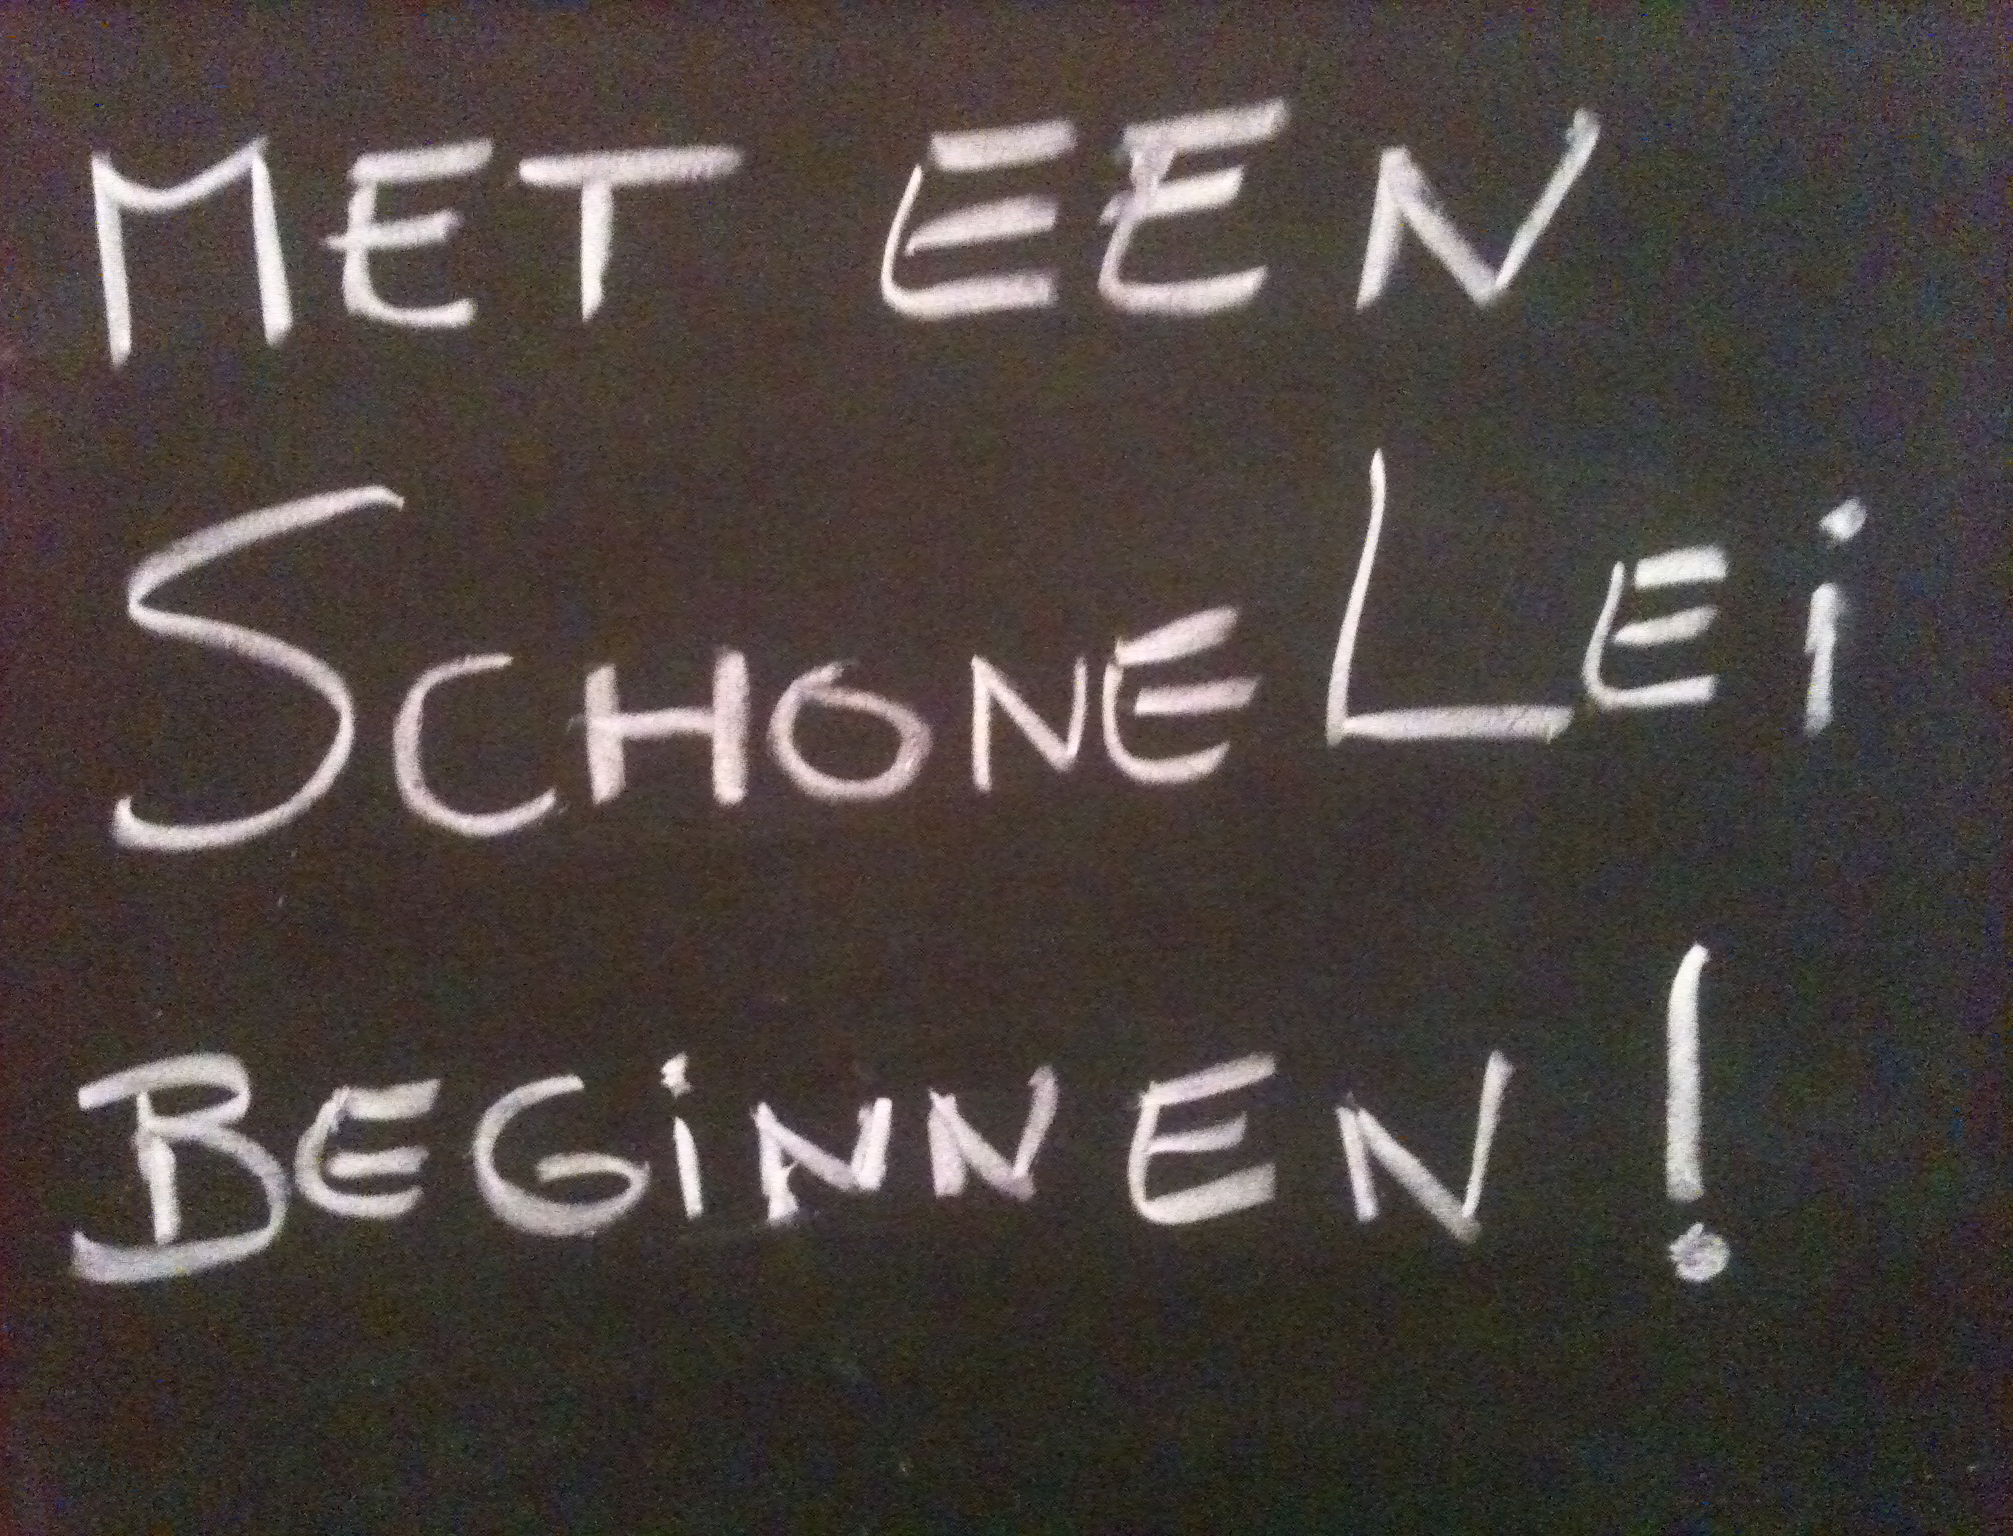 MET EEN
SCHONE LEi
BEGiNNEN!